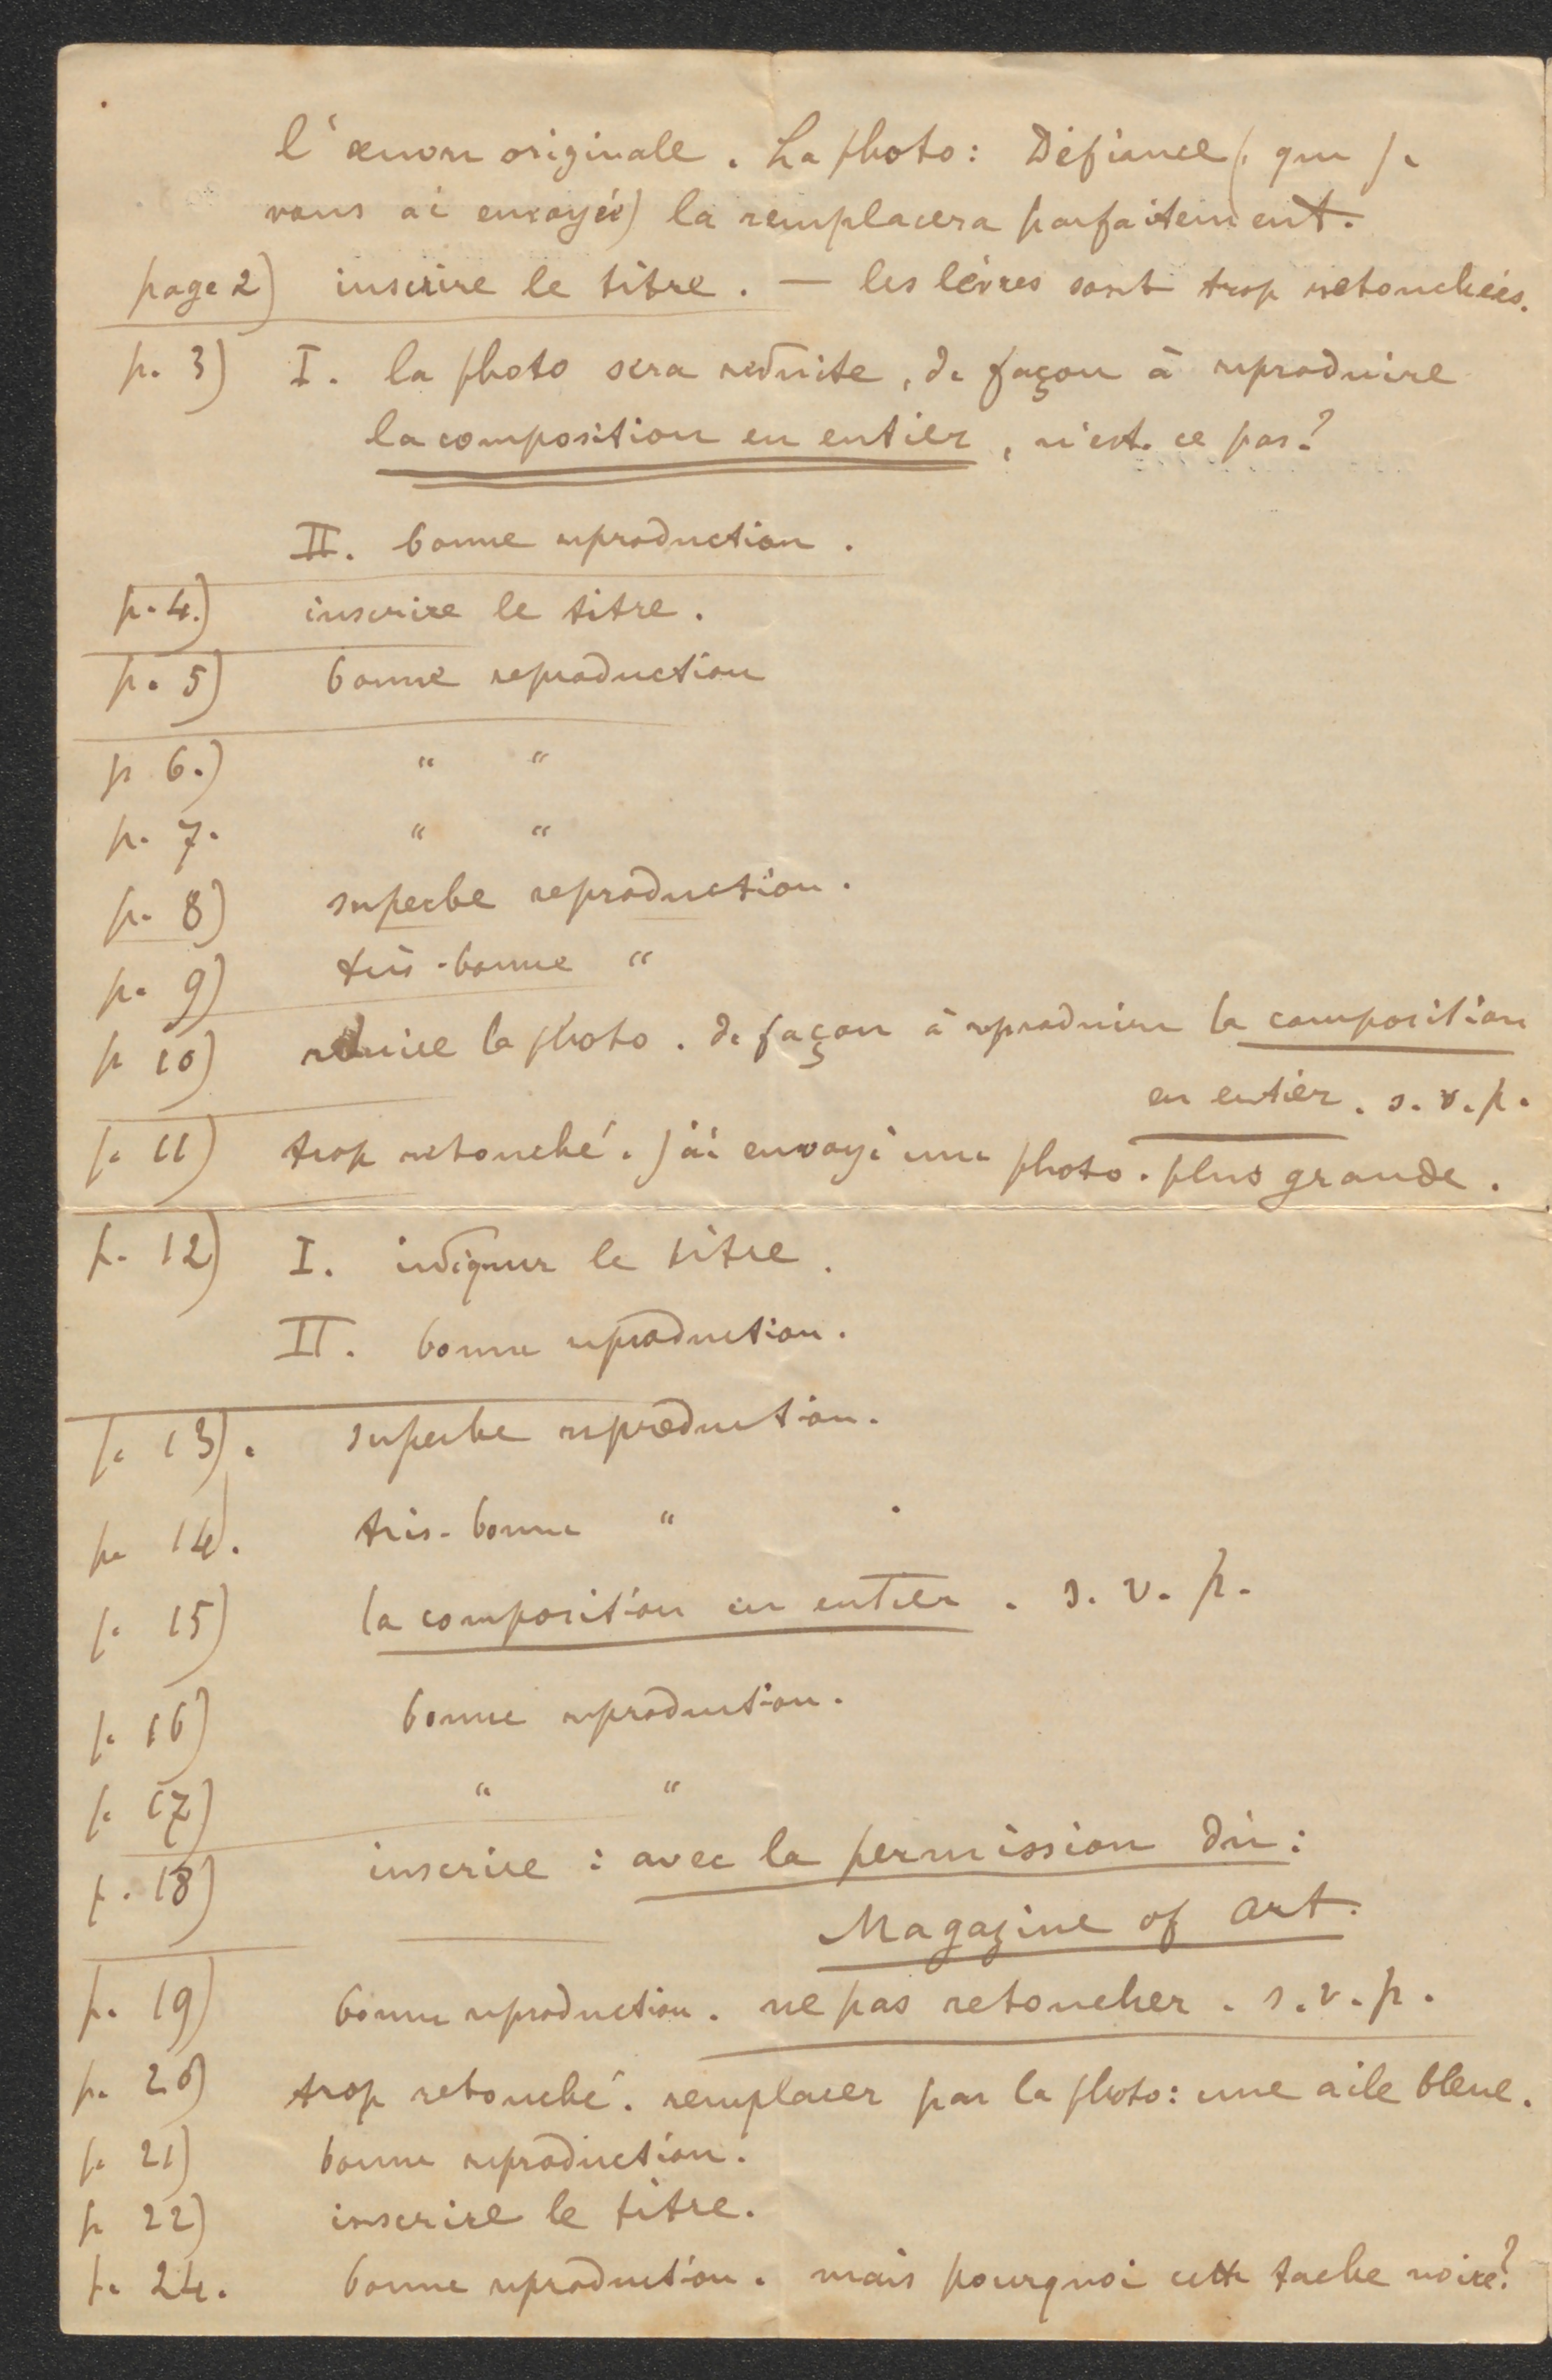 l'œuvre originale. La photo: Défiance (que je
vous ai envoyée) la remplacera parfaitement.
page 2) inscrire le titre. — les lèvres sont trop retouchées.
p. 3) I. la photo sera reduite, de façon à reproduire
la composition en entier, n'est-ce pas?
II. bonne reproduction.
p. 4.) inscrire le titre.
p. 5) bonne reproduction
p 6.) " "
p. 7. " "
p. 8) superbe reproduction.
p. 9) très-bonne "
p 10) réduire la photo. de façon à reproduire la composition
en entier. s.v.p.
p. 11) trop retouché. j'ai envoyé une photo. plus grande.
p. 12) I. indiquer le titre.
II. bonne reproduction.
p. 13). superbe reproduction.
p. 14). très-bonne " .
p. 15) la composition en entier. s.v.p.
p. 16) bonne reproduction.
p. 17) " "
p. 18) inscrire : avec la permission du:
Magazine of Art.
p. 19) bonne reproduction. ne pas retoucher. s.v.p.
p. 20) trop retouché. remplacer par la photo: une aile bleue.
p. 21) bonne reproduction.
p 22) inscrire le titre.
p. 24. bonne reproduction. mais pourquoi cette tache noire?